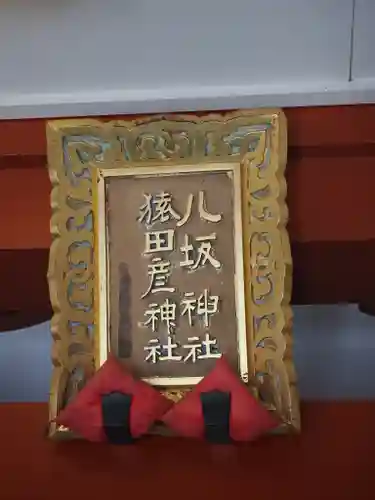 八坂神社
猿田彦神社